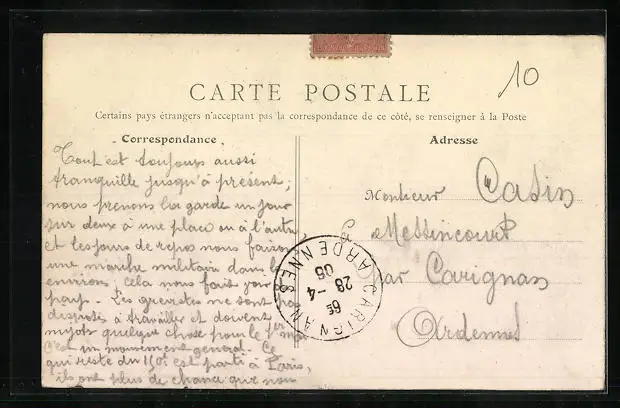 10
CARTE POSTALE
Certains pays étrangers n'acceptent pas la correspondance de ce côté, se renseigner à la Poste
Correspondance
Tout est toujours aussi
tranquille jusqu'à présent ;
nous prenons la garde un jour
sur deux à une place ou à l'autre
et les jours de repos nous faisons
une marche militaire dans les
environs, cela nous fait voir
pays. Les grevistes ne sont pas
disposés à travailler et doivent
quelque chose pour le 1er mai
C'est un mouvement general. Ce
qui reste du est parti à Paris,
ils ont plus de chance que nous
Adresse
Monsieur Casin
Messincourt
par Carignan
Ardennes
CARIGNAN
ARDENNES
6E
28 - 4
06